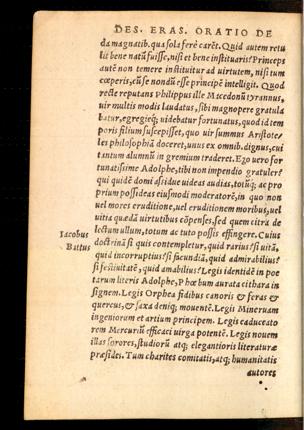 DES. ERAS. ORATIO DE
da magnatib. qua sola ferè carēt. Quid autem retu
lit bene natū fuisse, nisi et bene instituaris? Princeps
autē non temere instituitur ad uirtutem, nisi tum
cœperis, cū se nondū esse principē intelligit. Quod
recte reputans Philippus ille Macedonū tyrannus,
uir multis modis laudatus, sibi magnopere gratula
batur, egregieq; uidebatur fortunatus, quod id tem
poris filium suscepisset, quo uir summus Aristote/
les philosophiā doceret, unus ex omnib. dignus, cui
tantum alumnū in gremium traderet. Ego uero for
tunatissime Adolphe, tibi non impendio gratuler?
qui quidē domi assidue uideas audias, totūq; ac pro
prium possideas eiusmodi moderatorē, in quo non
uel mores eruditione, uel eruditionem moribus, uel
uitia quædā uirtutibus cōpenses, sed quem citra de
lectum ullum, totum ac tuto possis effingere. Cuius
Iacobus
Battus
doctrinā si quis contempletur, quid rarius? si uitā,
quid incorruptius? si facundiā, quid admirabilius?
si festiuitatē, quid amabilius? Legis identidē in poe
tarum literis Adolphe, Phœbum aurata cithara in
signem. Legis Orphea fidibus canoris & feras &
quercus, & saxa deniq; mouentē. Legis Mineruam
ingeniorum et artium principem. Legis caduceato
rem Mercuriū efficaci uirga potentē. Legis nouem
illas sorores, studiorū atq; elegantioris literaturæ
præsides. Tum charites comitatis, atq; humanitatis
autores